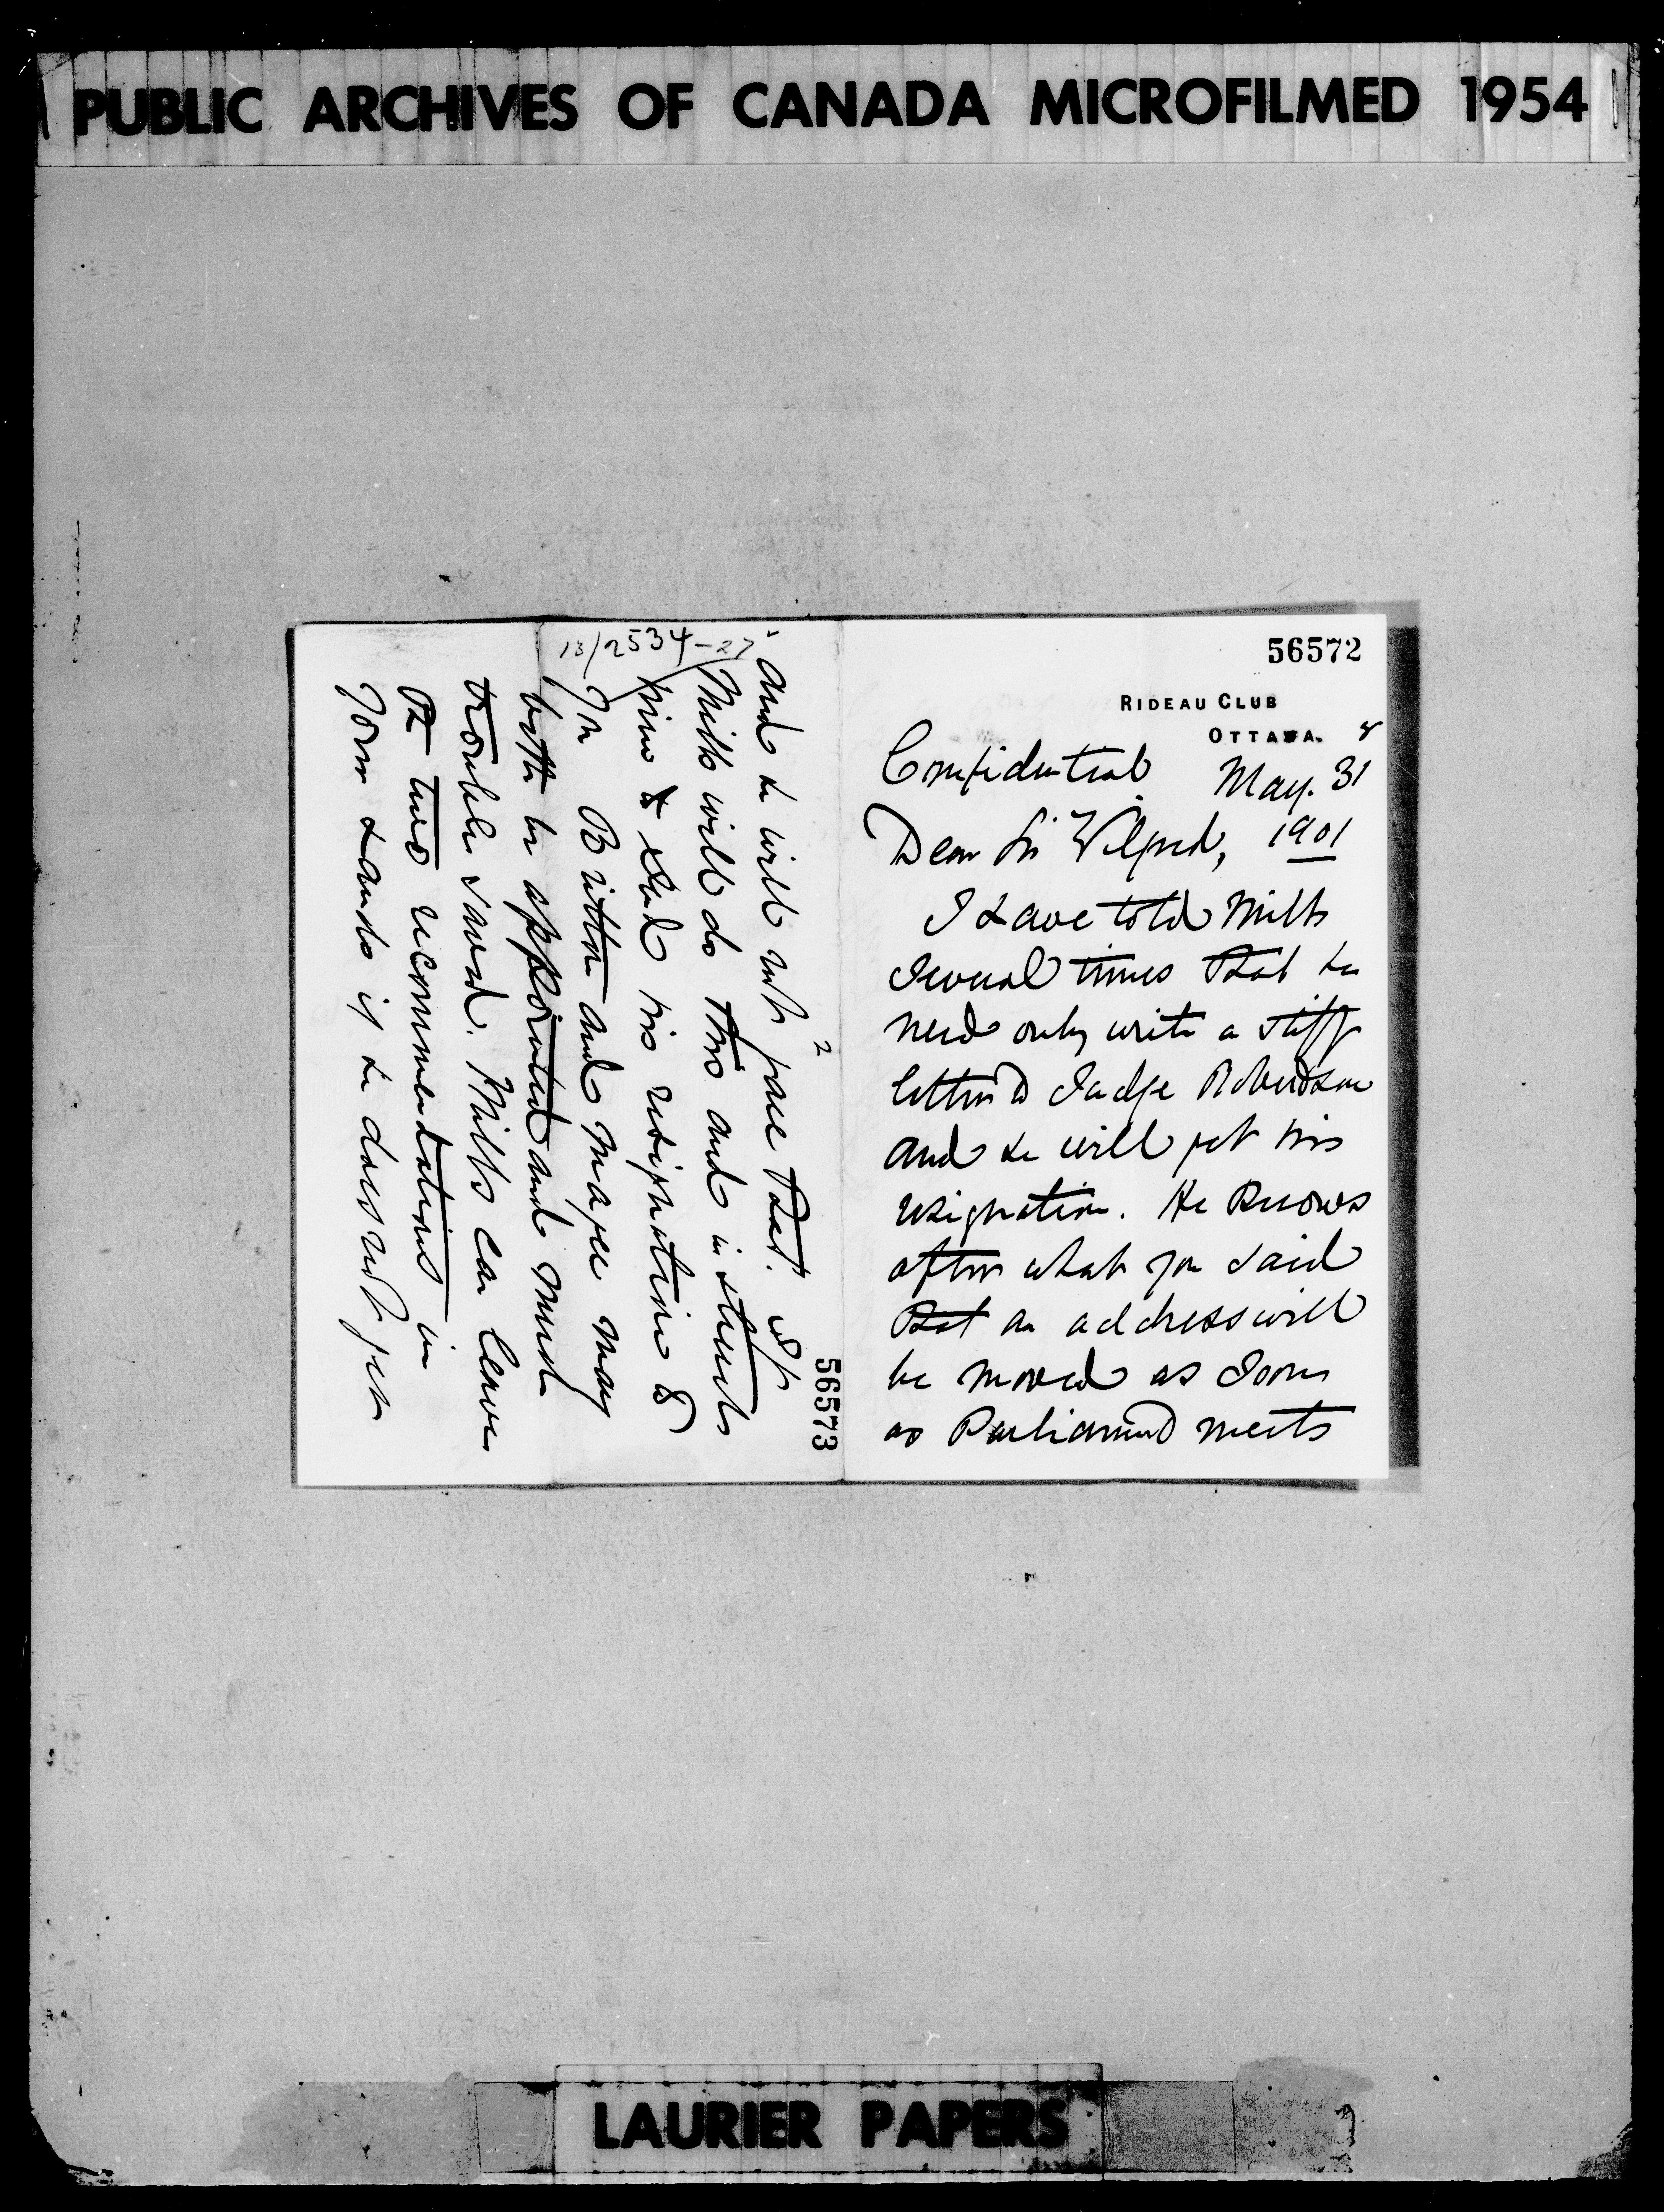 PUBLIC ARCHIVES OF CANADA MICROFILMED 1954
56572
RIDEAU CLUB
OTTAWA.
Confidential May. 31
Dear Sir Wilfrid, 1901
I have told Mills
several times that he
need only write a stiff
letter to Judge Robertson
and he will get his
resignation. He knows
after what you said
that an address will
be moved as soon
as Parliament meets
56573
2
13/2534-27
and he will not face that. If
Mills will do this and instructs
him to send his resignation to
you Britton and Magee may
both be appointed and much
trouble saved. Mills can leave
the two recommendations in
your hands if he does not get
LAURIER PAPERS